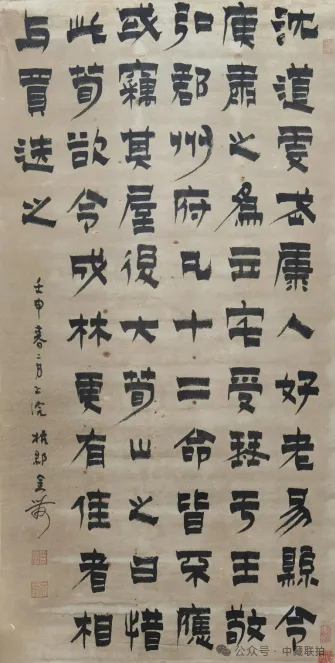 沈道虔武康人好老易縣令
庾肅之為立宅受琴亏王敬
弘郡州府凡十二命皆不應
或竊其屋後大筍止之曰惜
此筍欲令成林更有佳者相
与買送之
壬申春二月上浣杭郡金農
公众号·中藏联拍